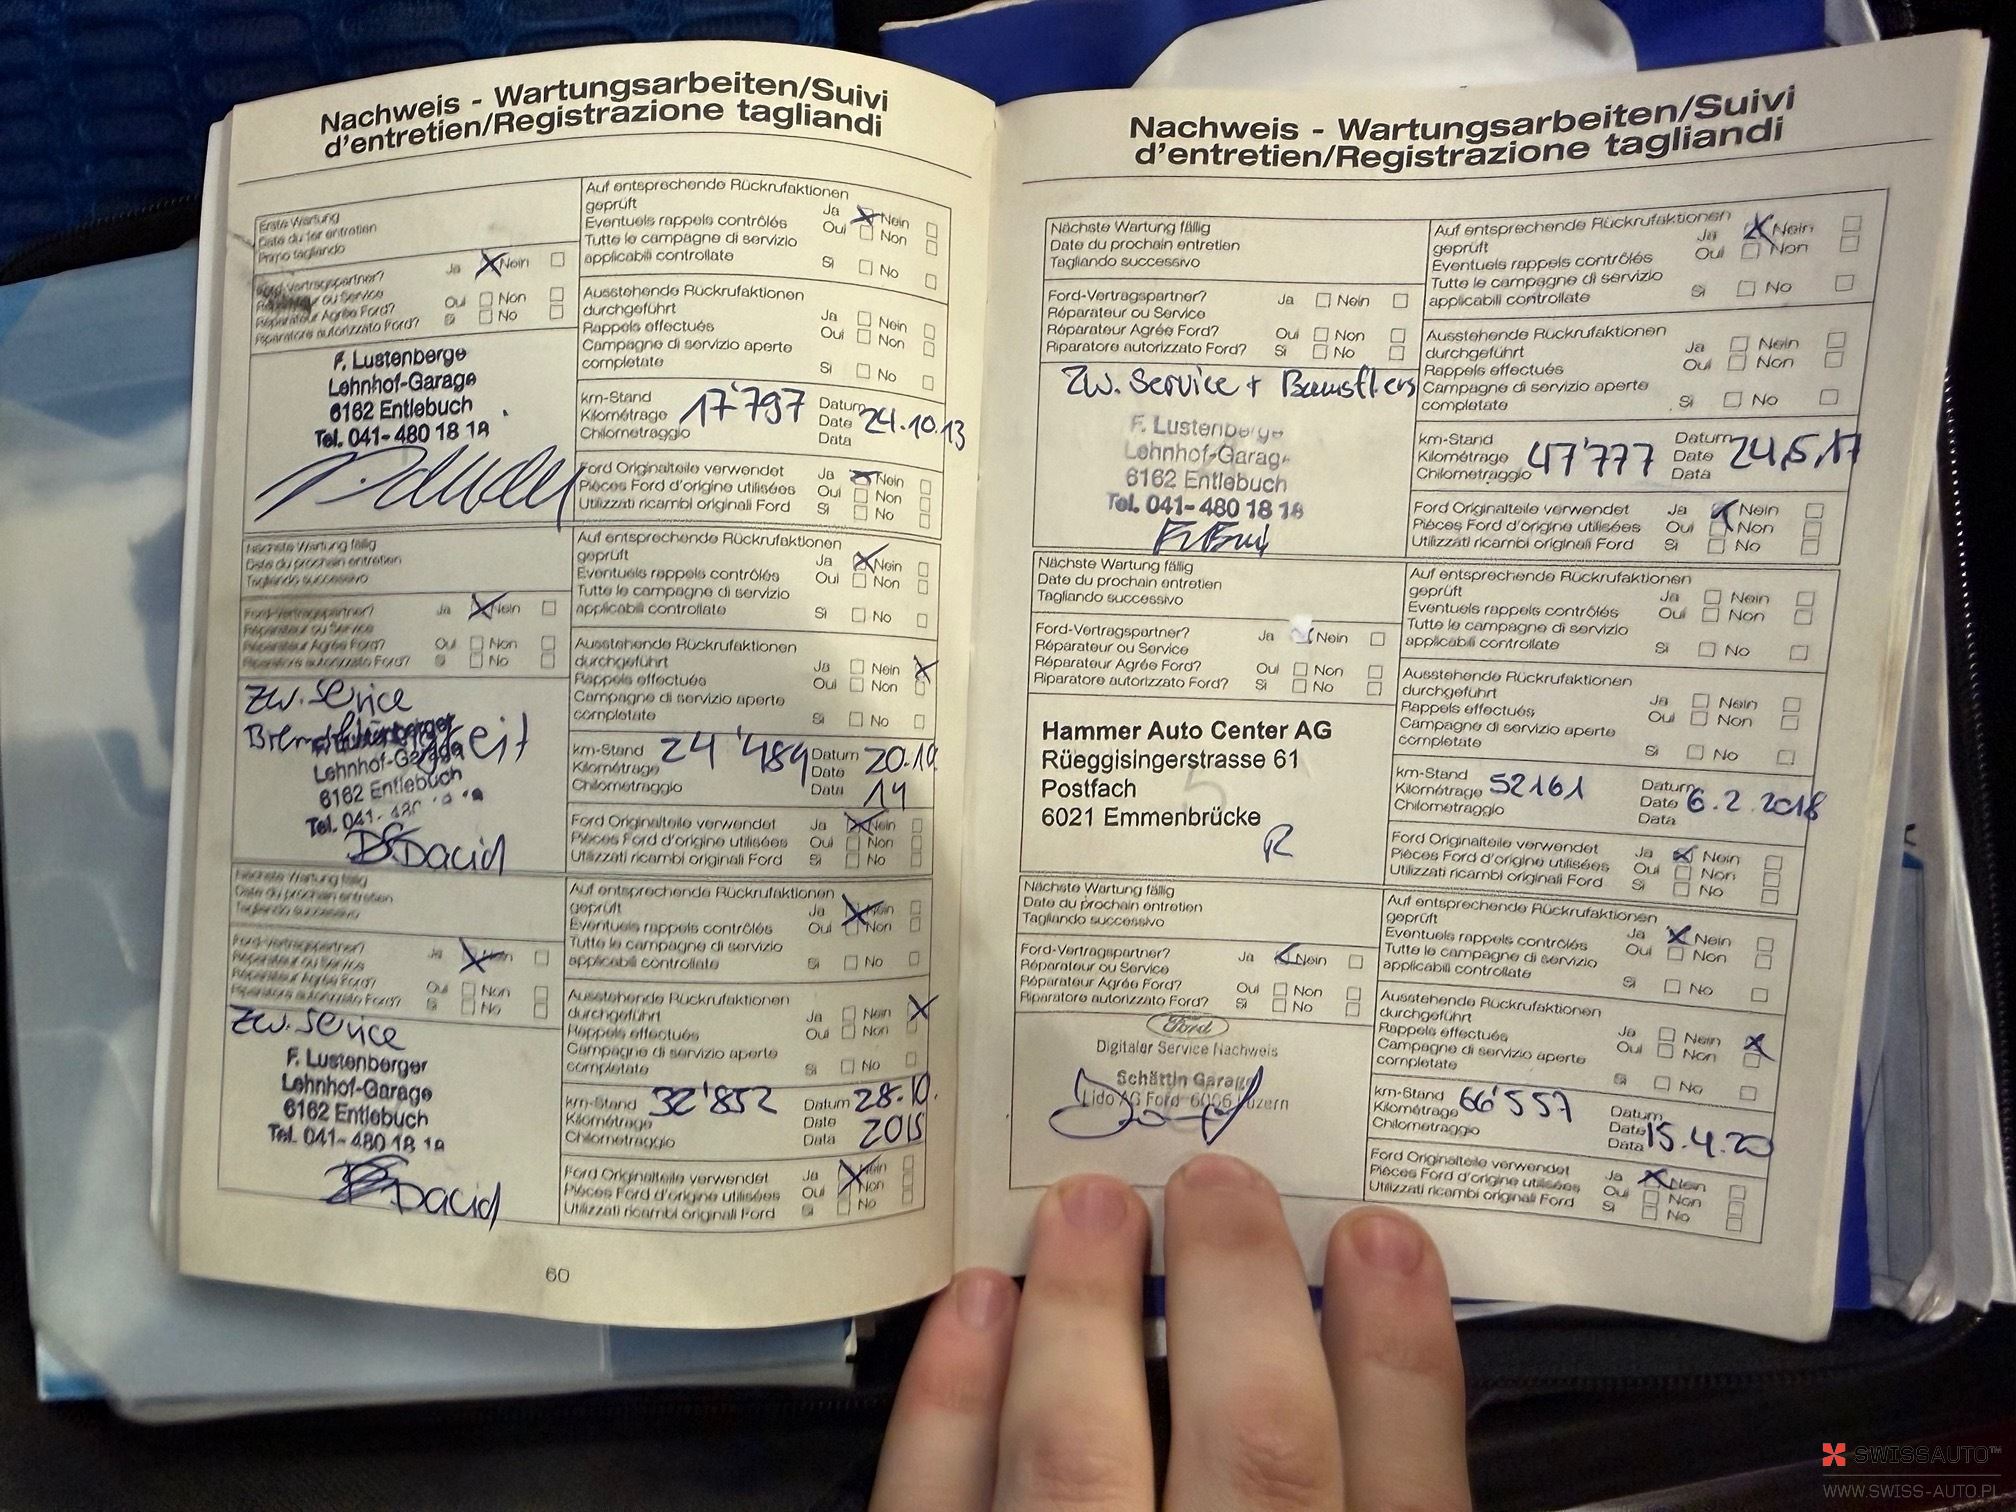 Nachweis - Wartungsarbeiten/Suivi
d'entretien/Registrazione tagliandi
Erste Wartung
Date du 1er entretien
Primo tagliando
Ford-Vertragspartner? Ja Nein
Réparateur ou Service Oui Non
Réparateur Agrée Ford?
Riparatore autorizzato Ford? Si No
F. Lustenberge
Lehnhof-Garage
6162 Entlebuch
Tel. 041-480 18 18
Auf entsprechende Rückrufaktionen
geprüft Ja Nein
Eventuels rappels contrôlés Oui Non
Tutte le campagne di servizio
applicabili controllate Si No
Ausstehende Rückrufaktionen
durchgeführt Ja Nein
Rappels effectués Oui Non
Campagne di servizio aperte
completate Si No
km-Stand
Kilométrage 17'797
Chilometraggio
Datum
Date 24.10.13
Data
Ford Originalteile verwendet Ja Nein
Pièces Ford d'origine utilisées Oui Non
Utilizzati ricambi originali Ford Si No
Nächste Wartung fällig
Date du prochain entretien
Tagliando successivo
Ford-Vertragspartner? Ja Nein
Réparateur ou Service
Réparateur Agrée Ford? Oui Non
Riparatore autorizzato Ford? Si No
Zw. Service
Lehnhof-Garage
6162 Entlebuch
Tel. 041-
David
Auf entsprechende Rückrufaktionen
geprüft Ja Nein
Eventuels rappels contrôlés Oui Non
Tutte le campagne di servizio
applicabili controllate Si No
Ausstehende Rückrufaktionen
durchgeführt Ja Nein
Rappels effectués Oui Non
Campagne di servizio aperte
completate Si No
km-Stand 24'489
Kilométrage
Chilometraggio
Datum 20.10.
Date
Data 14
Ford Originalteile verwendet Ja Nein
Pièces Ford d'origine utilisées Oui Non
Utilizzati ricambi originali Ford Si No
Nächste Wartung fällig
Date du prochain entretien
Tagliando successivo
Ford-Vertragspartner? Ja Nein
Réparateur ou Service
Réparateur Agrée Ford? Oui Non
Riparatore autorizzato Ford? Si No
Zw. Service
F. Lustenberger
Lehnhof-Garage
6162 Entlebuch
Tel. 041-480 18 18
David
Auf entsprechende Rückrufaktionen
geprüft Ja Nein
Eventuels rappels contrôlés Oui Non
Tutte le campagne di servizio
applicabili controllate Si No
Ausstehende Rückrufaktionen
durchgeführt Ja Nein
Rappels effectués Oui Non
Campagne di servizio aperte
completate Si No
km-Stand 32'852
Kilométrage
Chilometraggio
Datum 28.10.
Date
Data 2015
Ford Originalteile verwendet Ja Nein
Pièces Ford d'origine utilisées Oui Non
Utilizzati ricambi originali Ford Si No
60
Nachweis - Wartungsarbeiten/Suivi
d'entretien/Registrazione tagliandi
Nächste Wartung fällig
Date du prochain entretien
Tagliando successivo
Ford-Vertragspartner? Ja Nein
Réparateur ou Service
Réparateur Agrée Ford? Oui Non
Riparatore autorizzato Ford? Si No
Zw. Service +
F. Lustenberge
Lehnhof-Garag
6162 Entlebuch
Tel. 041-480 18 18
Auf entsprechende Rückrufaktionen
geprüft Ja Nein
Eventuels rappels contrôlés Oui Non
Tutte le campagne di servizio
applicabili controllate Si No
Ausstehende Rückrufaktionen
durchgeführt Ja Nein
Rappels effectués Oui Non
Campagne di servizio aperte
completate Si No
km-Stand
Kilométrage 47'777
Chilometraggio
Datum
Date 24,5,17
Data
Ford Originalteile verwendet Ja Nein
Pièces Ford d'origine utilisées Oui Non
Utilizzati ricambi originali Ford Si No
Nächste Wartung fällig
Date du prochain entretien
Tagliando successivo
Ford-Vertragspartner? Ja Nein
Réparateur ou Service
Réparateur Agrée Ford? Oui Non
Riparatore autorizzato Ford? Si No
Hammer Auto Center AG
Rüeggisingerstrasse 61
Postfach
6021 Emmenbrücke
Auf entsprechende Rückrufaktionen
geprüft Ja Nein
Eventuels rappels contrôlés Oui Non
Tutte le campagne di servizio
applicabili controllate Si No
Ausstehende Rückrufaktionen
durchgeführt Ja Nein
Rappels effectués Oui Non
Campagne di servizio aperte
completate Si No
km-Stand
Kilométrage 52161
Chilometraggio
Datum
Date 6.2.2018
Data
Ford Originalteile verwendet Ja Nein
Pièces Ford d'origine utilisées Oui Non
Utilizzati ricambi originali Ford Si No
Nächste Wartung fällig
Date du prochain entretien
Tagliando successivo
Ford-Vertragspartner? Ja Nein
Réparateur ou Service
Réparateur Agrée Ford? Oui Non
Riparatore autorizzato Ford? Si No
Ford
Digitaler Service Nachweis
Schättin Garag
Lido AG Ford 6006 Luzern
Auf entsprechende Rückrufaktionen
geprüft Ja Nein
Eventuels rappels contrôlés Oui Non
Tutte le campagne di servizio
applicabili controllate Si No
Ausstehende Rückrufaktionen
durchgeführt Ja Nein
Rappels effectués Oui Non
Campagne di servizio aperte
completate Si No
km-Stand 66'557
Kilométrage
Chilometraggio
Datum
Date 15.4.20
Data
Ford Originalteile verwendet Ja Nein
Pièces Ford d'origine utilisées Oui Non
Utilizzati ricambi originali Ford Si No
SWISSAUTO™
WWW.SWISS-AUTO.PL